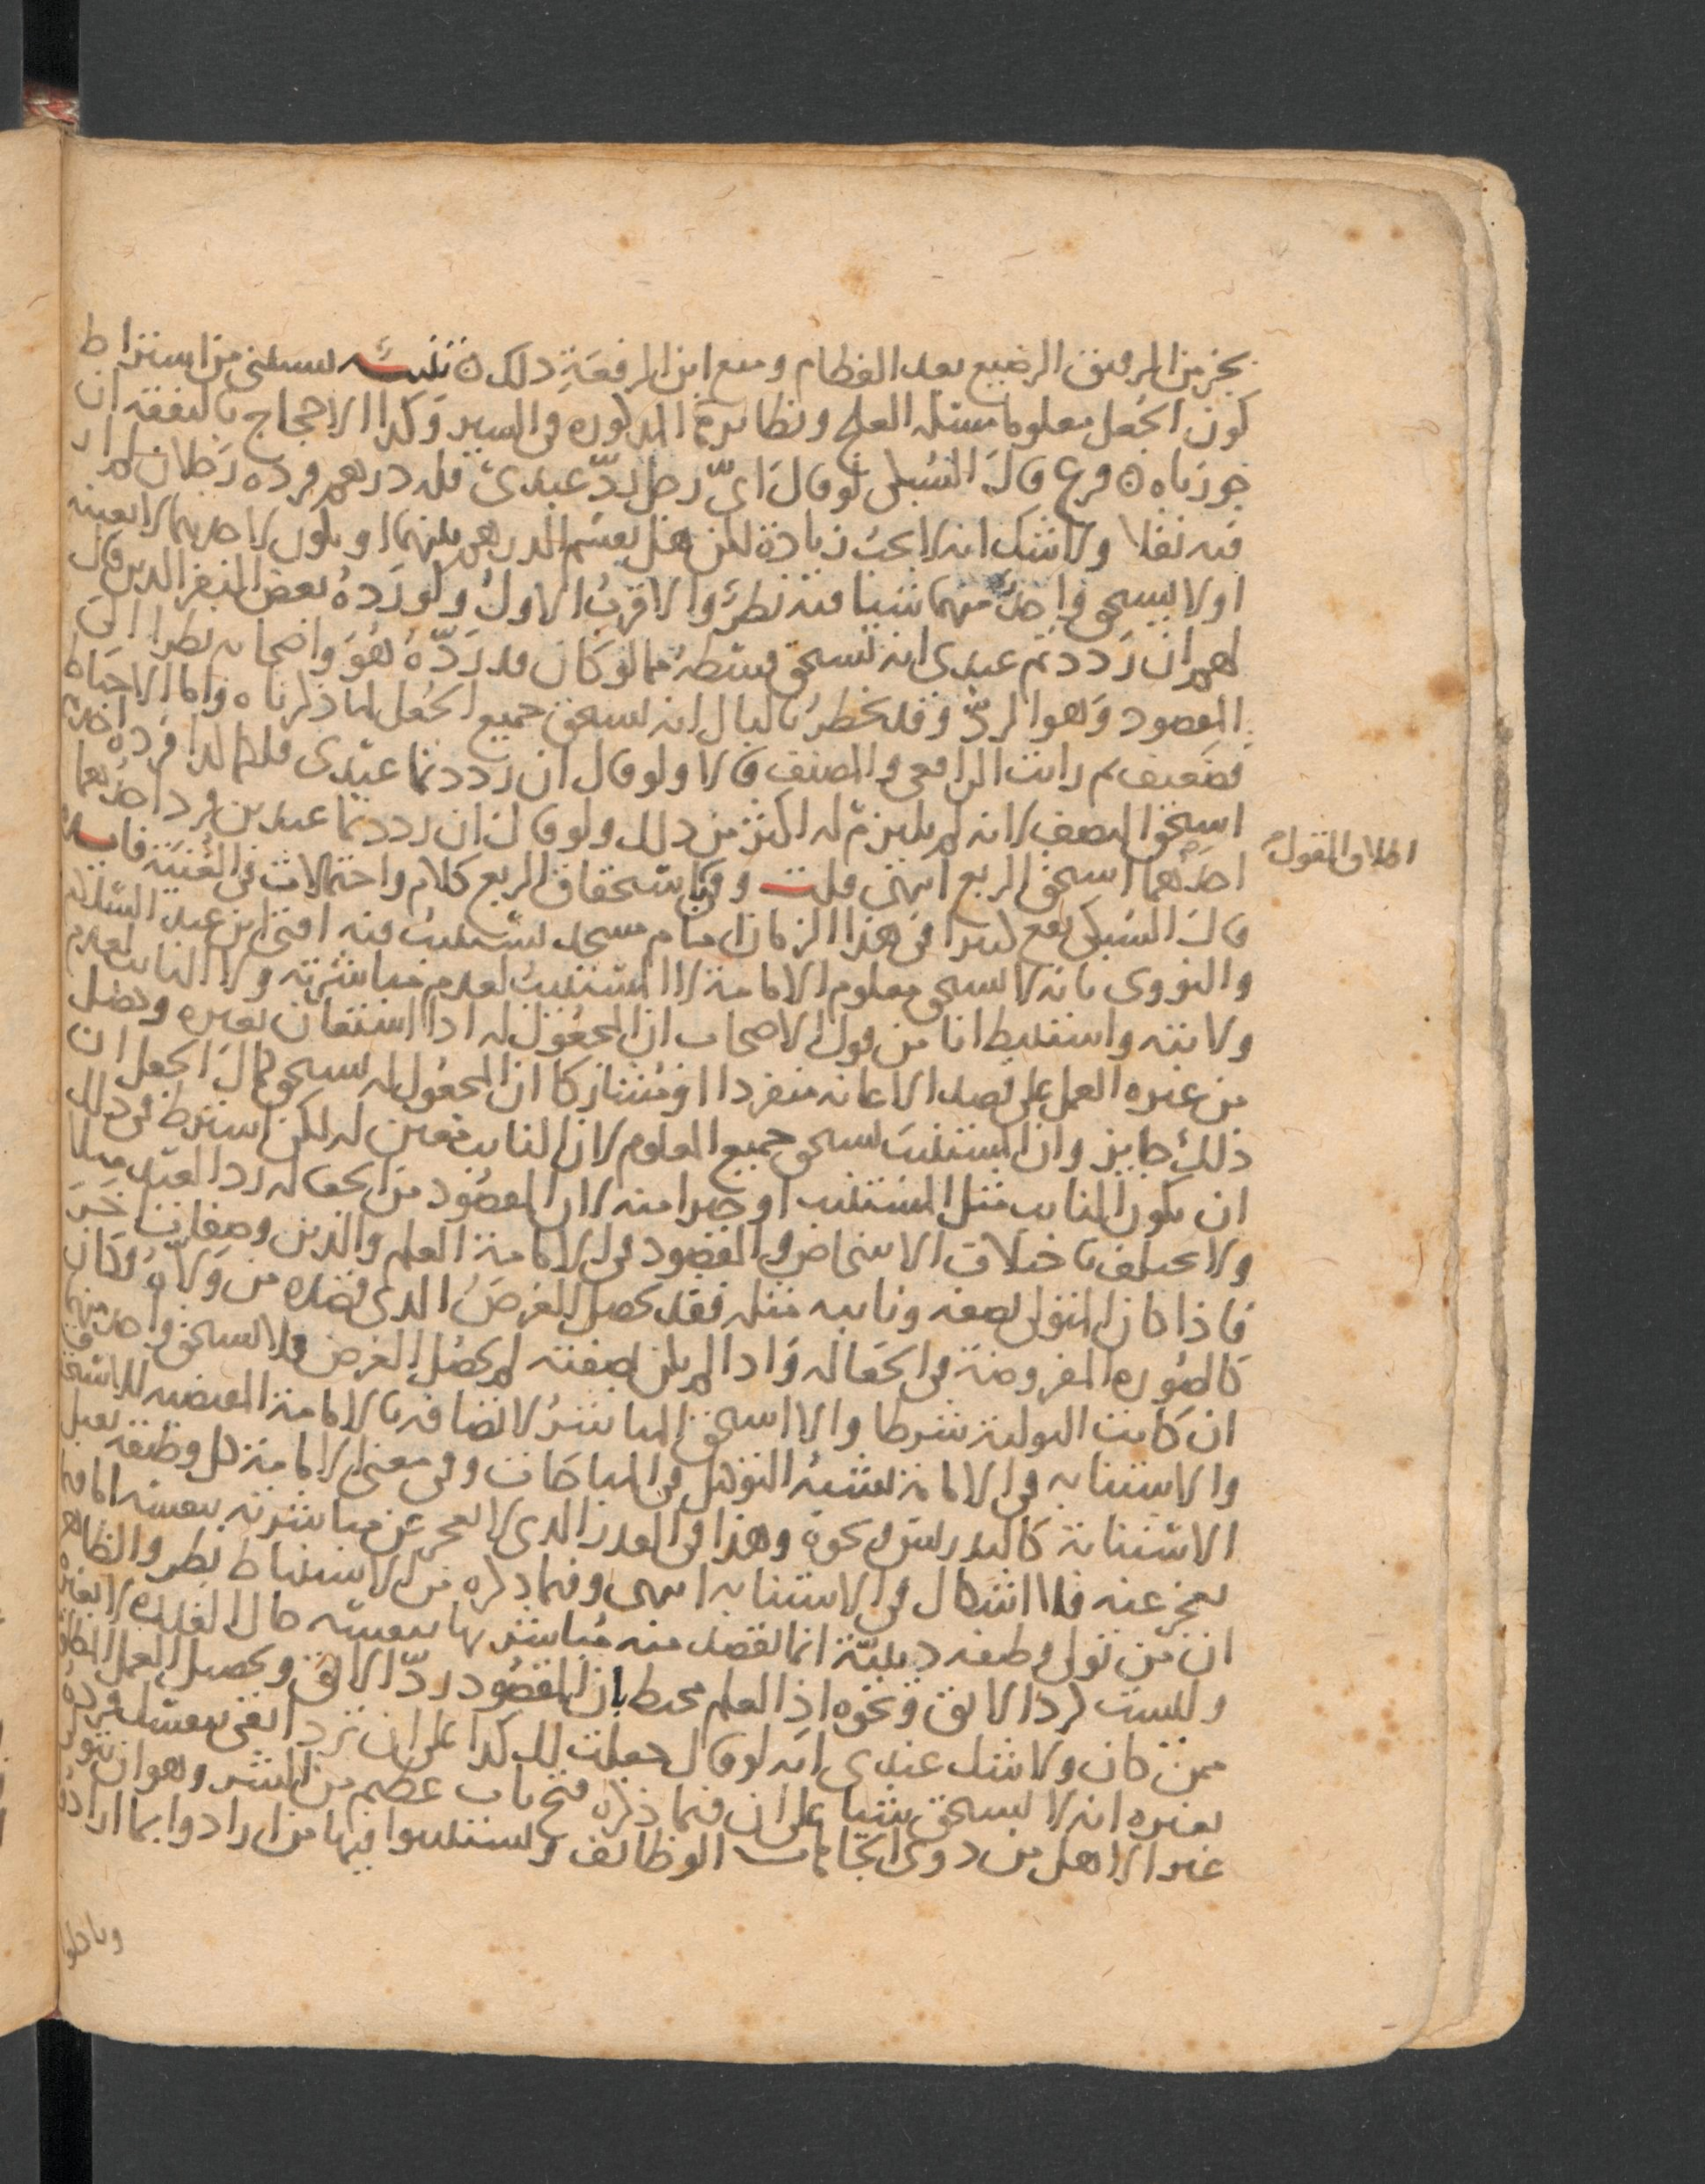 بجزء من الرقيق الرضيع بعد الفطام ومنع ابن الرفعة ذلك تنبيه يستثنى من اشتراط
كون الجعل معلوما مسئلة العلج ونظائره المذكورة في السير وكذا الاحجاج بالنفقة ان
جوزناه فرع قال السبكي لو قال اي رجل رد عبدي فله درهم فرده رجلان لم ار
فيه نقلا ولا شك انه لا يجب زيادة لكن هل يقسم الدرهم بينهما او يكون لاحدهما لا بعينه
او لا يستحق واحد منهما شيا فيه نظر والاقرب الاول ولو رده بعض النفر الذين قال
لهم ان رددتم عبدي انه يستحق قسطه مما لو كان قد رده هو واصحابه نظرا الى
المقصود وهو الرد وقد يخطر بالبال انه يستحق جميع الجعل لما ذكرناه واما الاحباط
فضعيف ثم رايت الرافعي والمصنف قالا ولو قال ان رددتما عبدي فلكما كذا فرده احدهما
استحق النصف لانه لم يلتزم له اكثر من ذلك ولو قال ان رددتما عبدين فرد احدهما
احدهما استحق الربع انتهى قلت وفي استحقاق الربع كلام واحتمالات في الغنية
اطلاق القول
قال السبكي يقع كثيرا في هذا الزمان امام مسجد يستنيب فيه افتى ابن عبد السلام
والنووي بانه لا يستحق معلوم الامامة لا المستنيب لعدم مباشرته ولا النائب لعدم
ولايته واستنبط انا من قول الاصحاب ان المجعول له اذا استعان بغيره وحصل
من غيره العمل على قصد الاعانة منفردا او مشاركا ان المجعول له يستحق كمال الجعل ان
ذلك جايز وان المستنيب يستحق جميع المعلوم لان النايب معين له لكن اشترط في ذلك
ان يكون النايب مثل المستنيب او خيرا منه لان المقصود من الجعالة رد العبد مثلا
ولا يختلف باختلاف الاشخاص والمقصود في الامامة العلم والدين وصفات اخر
فاذا كان المتولي بصفة ونايبه مثله فقد حصل الغرض الذي قصده من ولاه وكان
كالصورة المفروضة في الجعالة واذا لم يكن بصفته لم يحصل الغرض فلا يستحق واحد منهما
ان كانت التولية شرطا والا استحق المباشر لاتصافه بالامامة المقتضية للاستحقاق
والاستنابة في الامامة يشبه التوكيل في المباحات وفي معنى الامامة كل وظيفة تقبل
الاستنابة كالتدريس ونحوه وهذا في القدر الذي لا يعجز عن مباشرته بنفسه اما فيما
يعجز عنه فلا اشكال في الاستنابة انتهى وفيما ذكره من الاستنباط نظر والظاهر
ان من تولى وظيفة دينية انما يقصد منه مباشرتها بنفسه حال القدرة لا بغيره
وليست كرد الابق ونحوه اذ العلم محيط بان المقصود رد الابق وتحصيل العمل المطلق
ممن كان ولا شك عندي انه لو قال جعلت لك كذا على ان ترد ابقي بنفسك فرده
بغيره انه لا يستحق شيا على ان فيما ذكره فتح باب عظيم من الشر وهو ان يتولى
غير الاهل من ذوي الجاهات الوظائف ويستنيبوا فيها من ارادوا بما ارادوا
وياكلوا